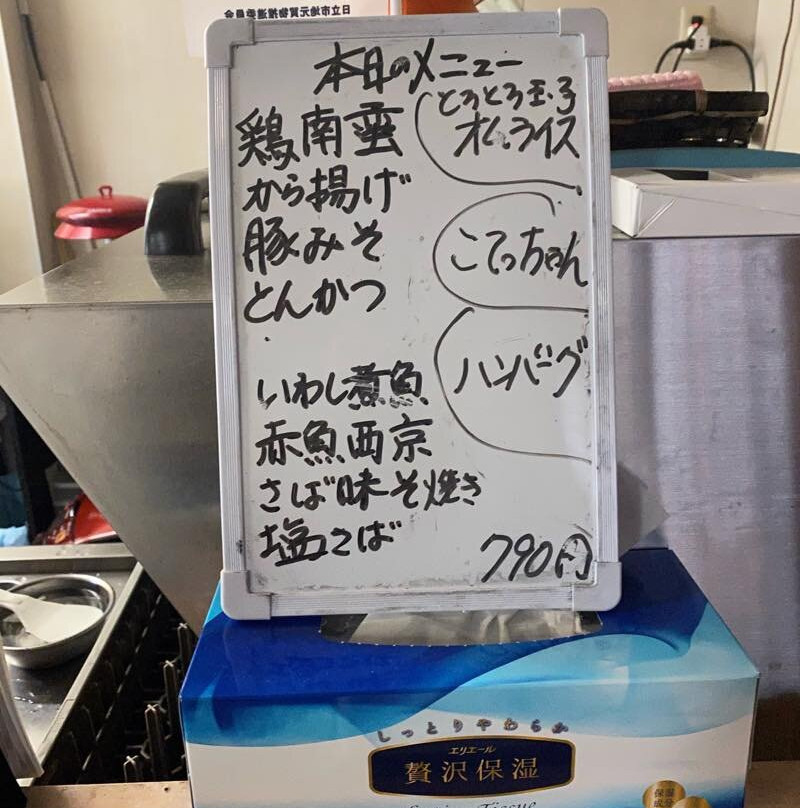 日立市地元買物推進委員会
本日のメニュー
鶏南蛮
から揚げ
豚みそ
とんかつ
いわし煮魚
赤魚西京
さば味そ焼き
塩さば
とろとろ玉子
オムライス
こてっちゃん
ハンバーグ
790円
しっとりやわらか
エリエール
贅沢保湿
保湿
成分